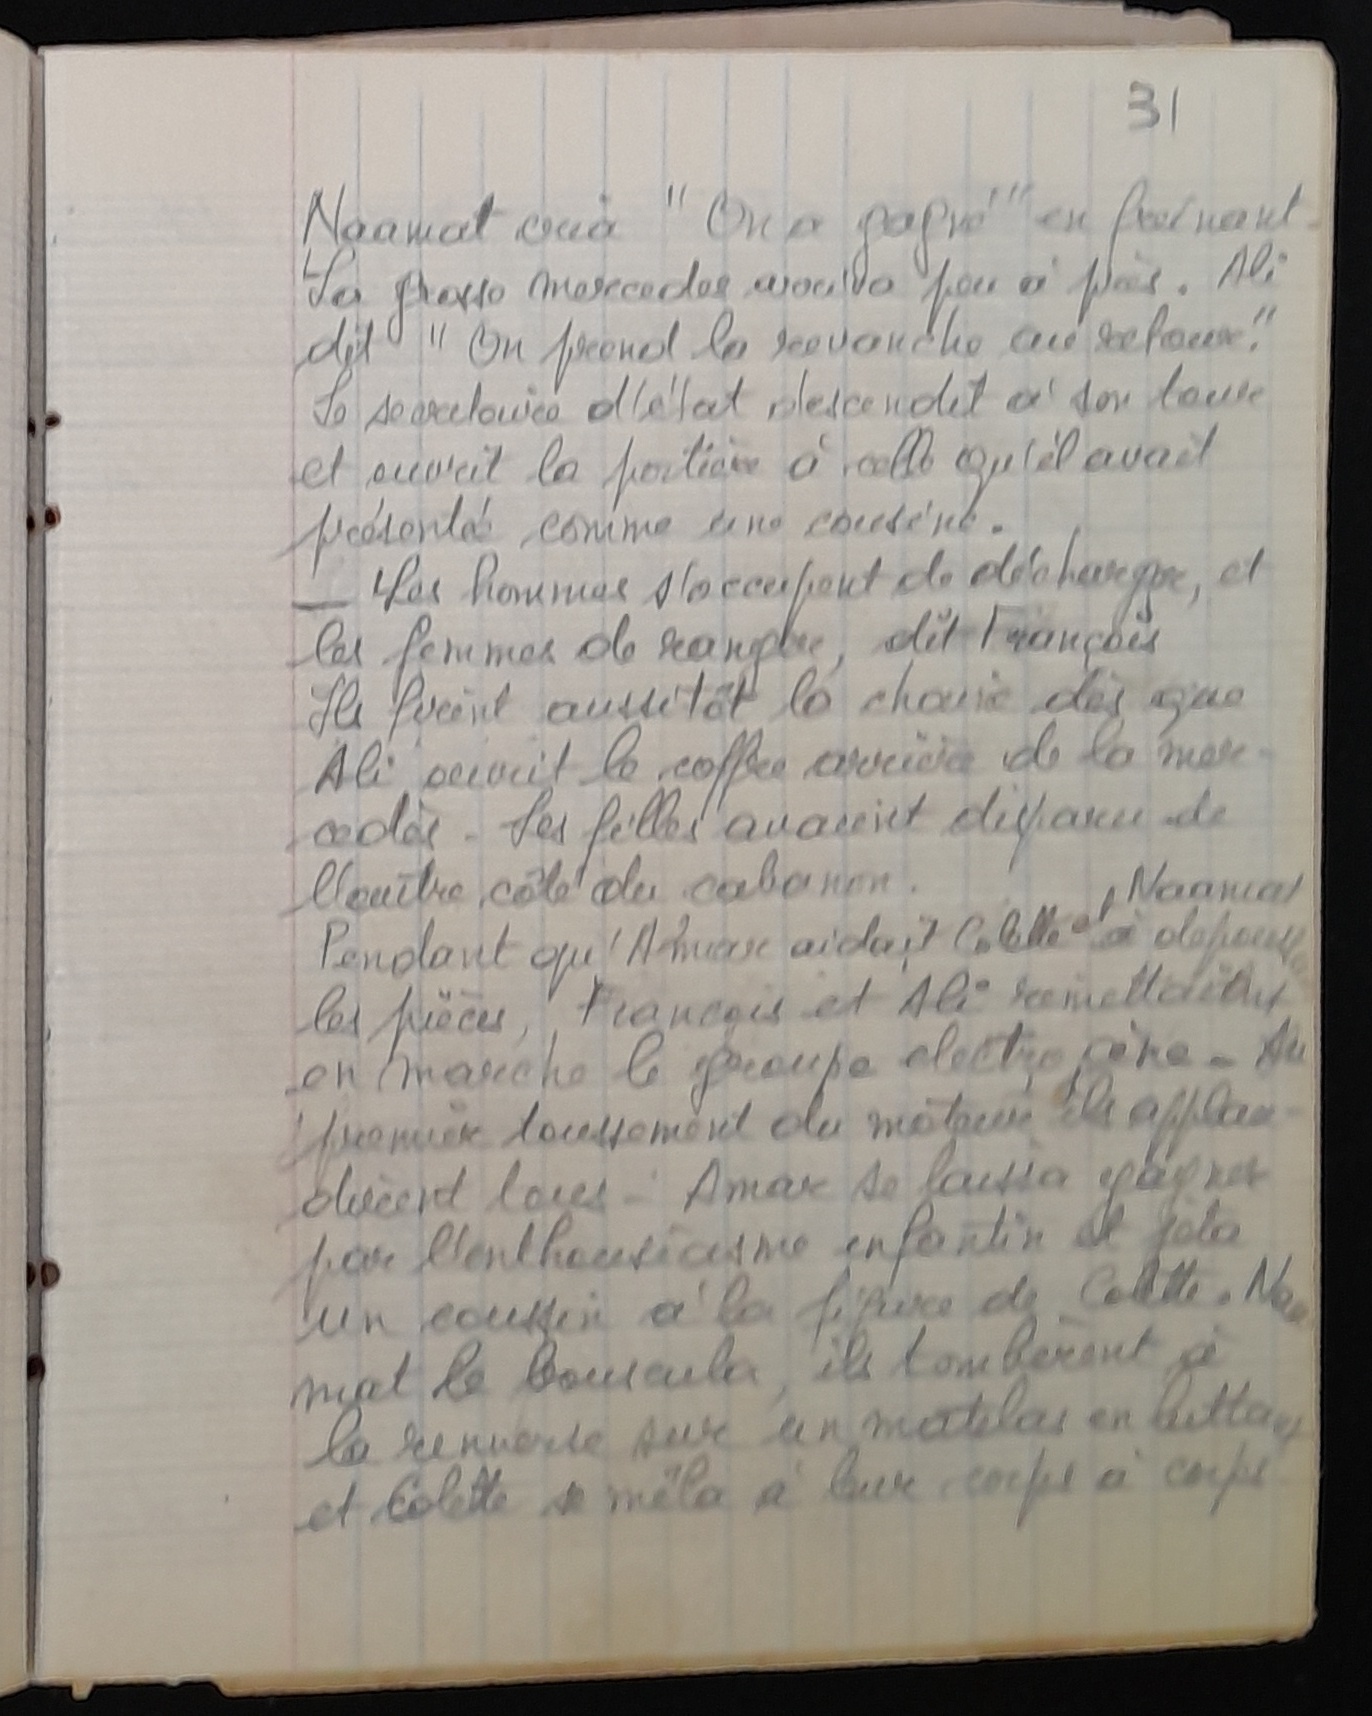 31
Naamat cria "On a gagné" en freinant.
La grosse mercedes arriva peu à près. Ali
dit "On prend la revanche au retour."
Le secretaire d'état descendit à son tour
et ouvrit la portière à celle qu'il avait
présentée comme une cousine.
— Les hommes s'occupent de décharger, et
les femmes de ranger, dit François
Ils firent aussitôt la chaine dès que
Ali ouvrit le coffre arrière de la mer-
cedès. Les filles avaient disparu de
l'autre côté du cabanon.
Pendant qu'Amar aidait Colette et Naamat à depous
les pièces, François et Ali remettaient
en marche le groupe electrogène. Au
premier toussement du moteur ils applau-
dirent tous. Amar se laissa gagner
par l'enthousiasme enfantin et jeta
un coussin à la figure de Colette. Naa
mat le bouscula, ils tombèrent à
la renverse sur un matelas en luttant
et Colette se mêla à leur corps à corps